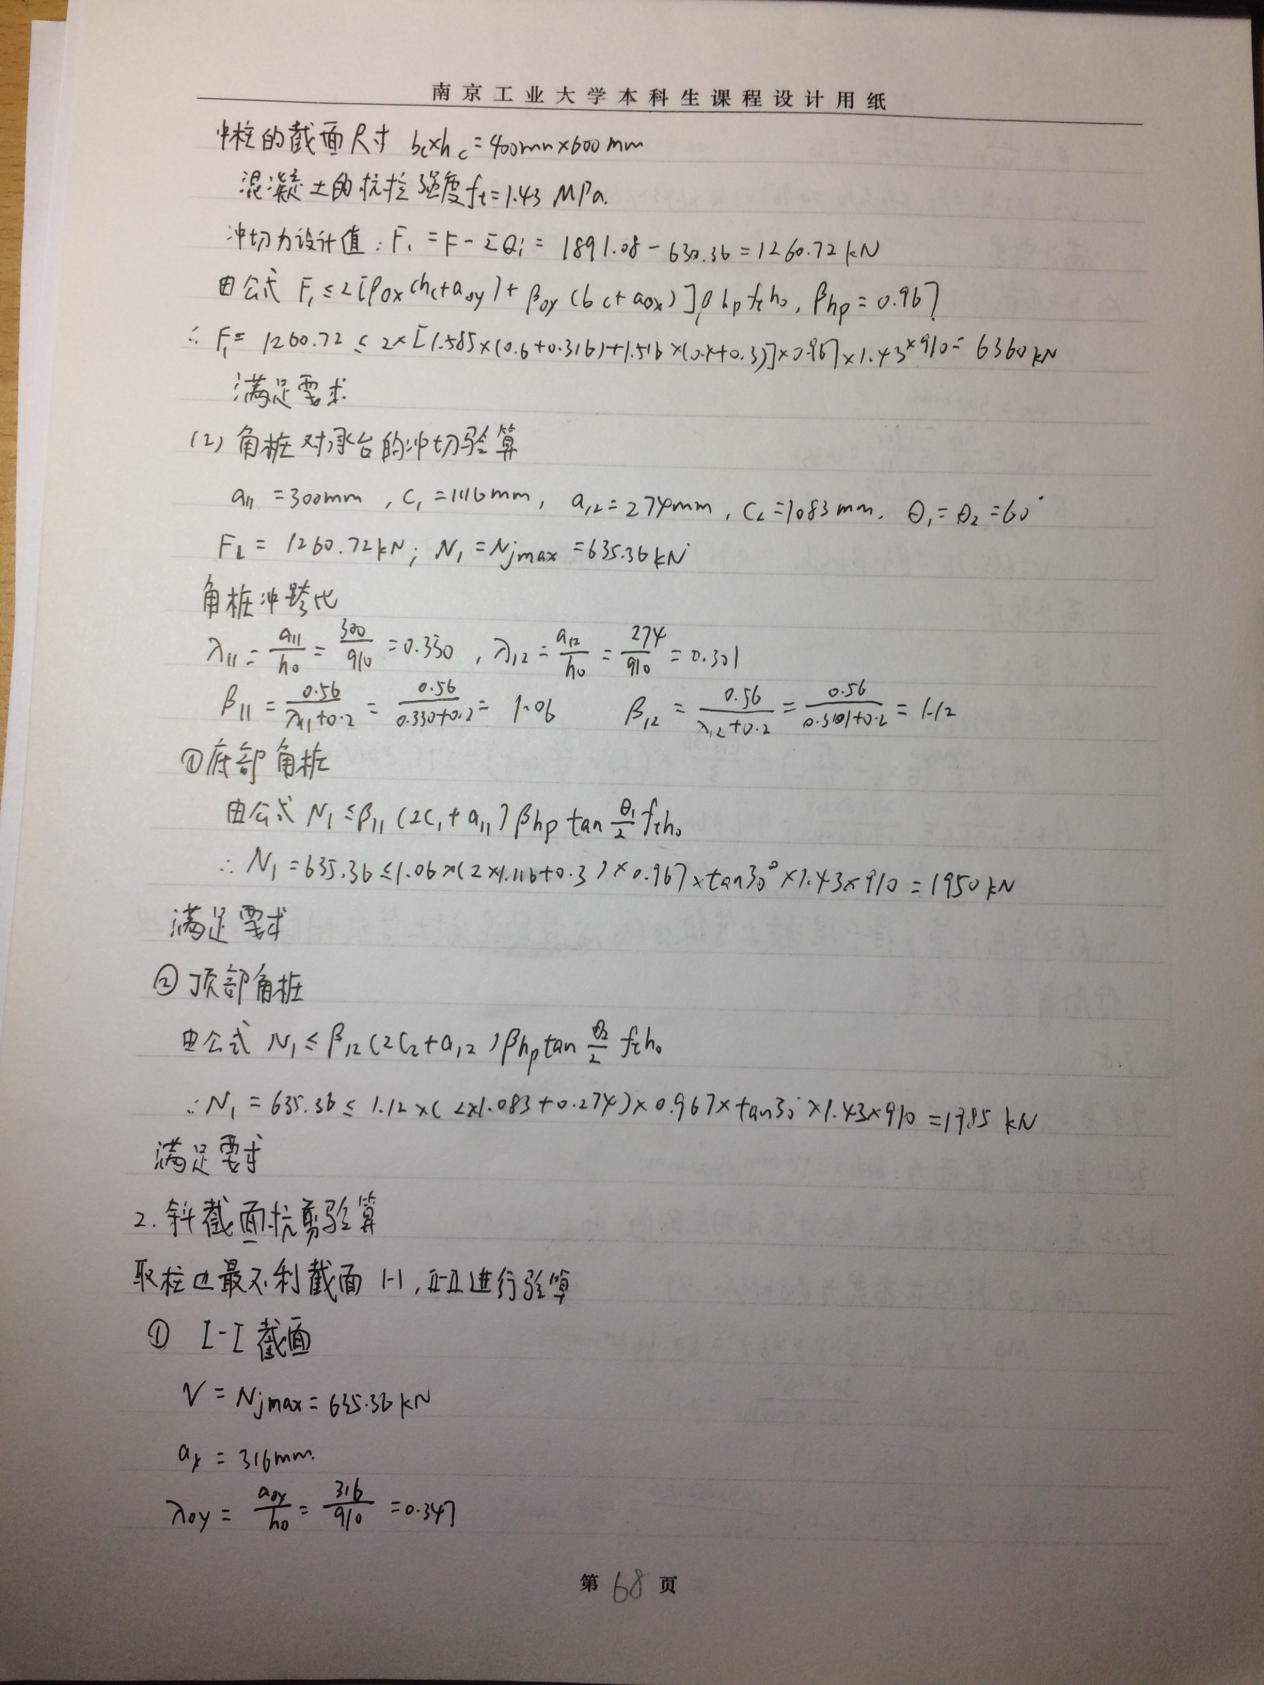 南京工业大学本科生课程设计用纸
中柱的截面尺寸 bc×hc=400mm×600mm
混凝土的抗拉强度ft=1.43 MPa.
冲切力设计值: F1 =F-ΣQi = 1891.08-630.36=1260.72kN
由公式 F1≤2[β0x(hc+a0y)+β0y(bc+a0x)]βhpfth0, βhp=0.967
∴ F1= 1260.72 ≤ 2×[1.585×(0.6+0.316)+1.516×(0.4+0.3)]×0.967×1.43×910= 6360kN
满足要求
(2) 角桩对承台的冲切验算
a11 =300mm , C1 =1116mm, a12=274mm, C2=1083mm. θ1=θ2=60°
FL= 1260.72kN; N1=Njmax=635.36kN
角桩冲跨比
λ11=a11/h0=300/910=0.330 , λ12=a12/h0=274/910=0.301
β11=0.56/(λ11+0.2)=0.56/(0.330+0.2)=1.06 β12=0.56/(λ12+0.2)=0.56/(0.301+0.2)=1.12
①底部角桩
由公式 N1≤β11(2C1+a11)βhp tan θ1/2 fth0
∴N1=635.36≤1.06×(2×1.116+0.3)×0.967×tan30°×1.43×910=1950kN
满足要求
②顶部角桩
由公式 N1≤β12(2C2+a12)βhptan θ2/2 fth0
∴N1=635.36≤ 1.12×(2×1.083+0.274)×0.967×tan30°×1.43×910=1985 kN
满足要求
2.斜截面抗剪验算
取柱边最不利截面 I-I, II-II进行验算
① I-I 截面
V=Njmax=635.36kN
ax = 316mm.
λ0y = a0y/h0 = 316/910 =0.347
第 68 页